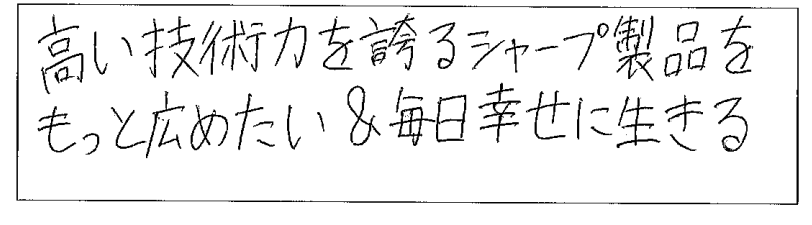 高い技術力を誇るシャープ製品を
もっと広めたい&毎日幸せに生きる